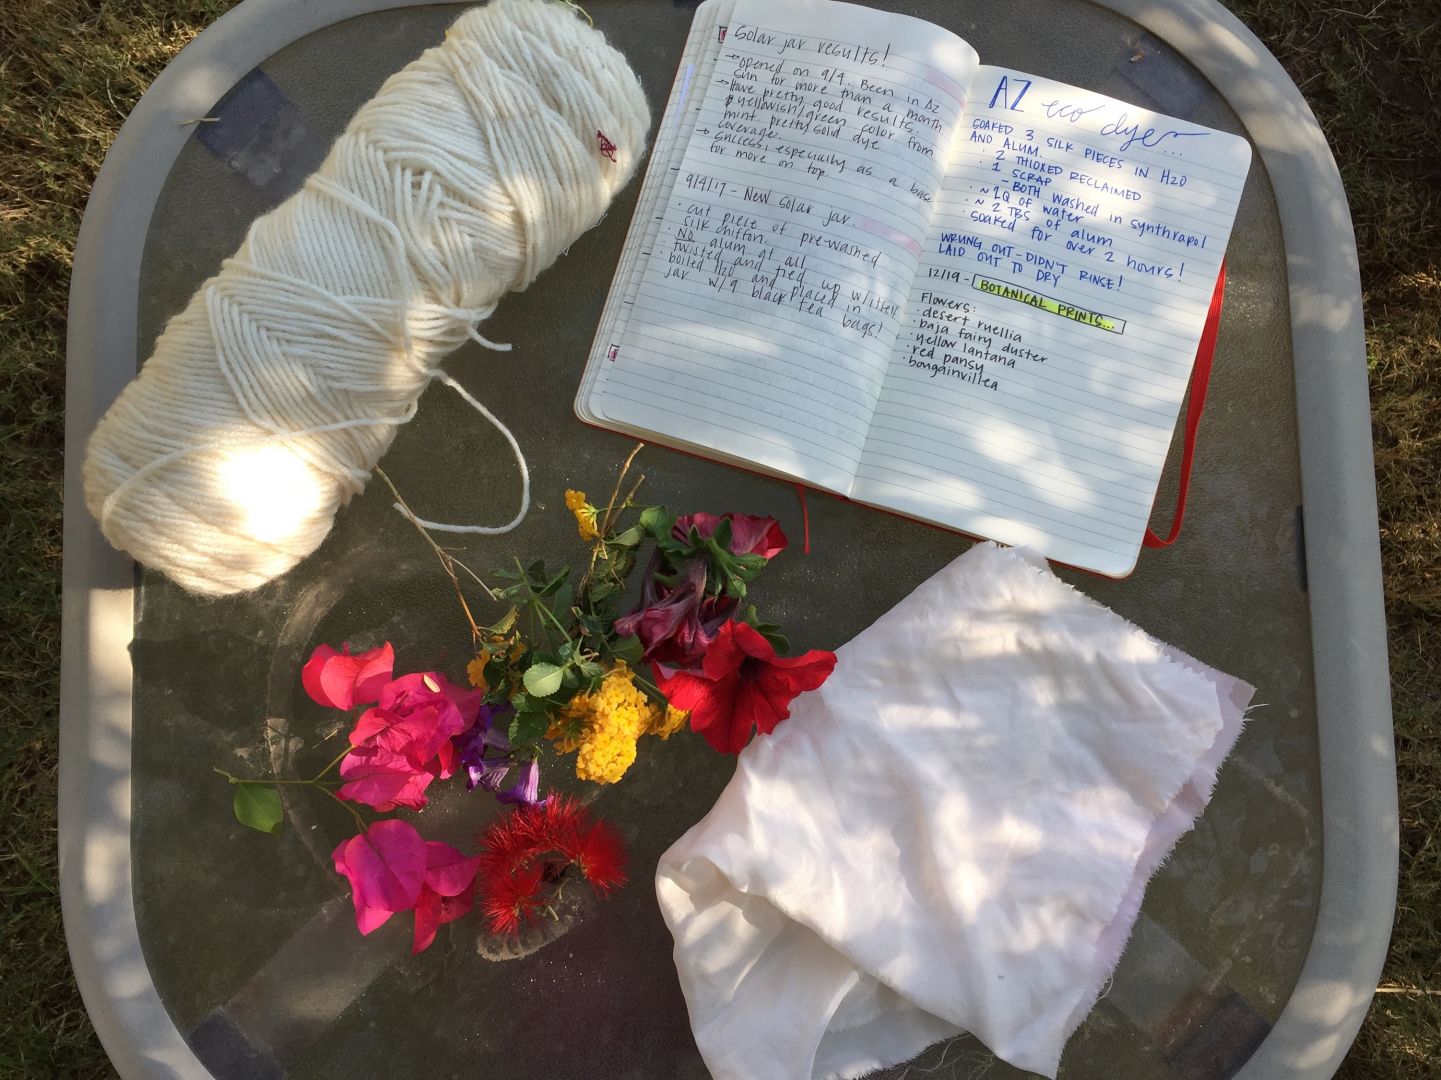 Solar jar results!
→ opened on 9/4. Been in AZ
sun for more than a month
→ Have pretty good results.
yellowish/green color from
mint. pretty solid dye
coverage.
→ success, especially as a base
for more on top.
9/4/17 - New solar jar.
· cut piece of pre-washed
silk chiffon.
· NO alum at all
· twisted and tied up w/itself
· boiled H2O and placed in
jar w/9 black tea bags!
AZ eco dye...
SOAKED 3 SILK PIECES IN H2O
AND ALUM.
· 2 THIOXED RECLAIMED
· 1 SCRAP
- BOTH WASHED in synthrapol
· ~ 2Q of water
· ~ 2 TBS of alum
· soaked for over 2 hours!
WRUNG OUT - DIDN'T RINSE!
LAID OUT TO DRY
12/19 - BOTANICAL PRINTS...
Flowers:
· desert ruellia
· baja fairy duster
· yellow lantana
· red pansy
· bougainvillea